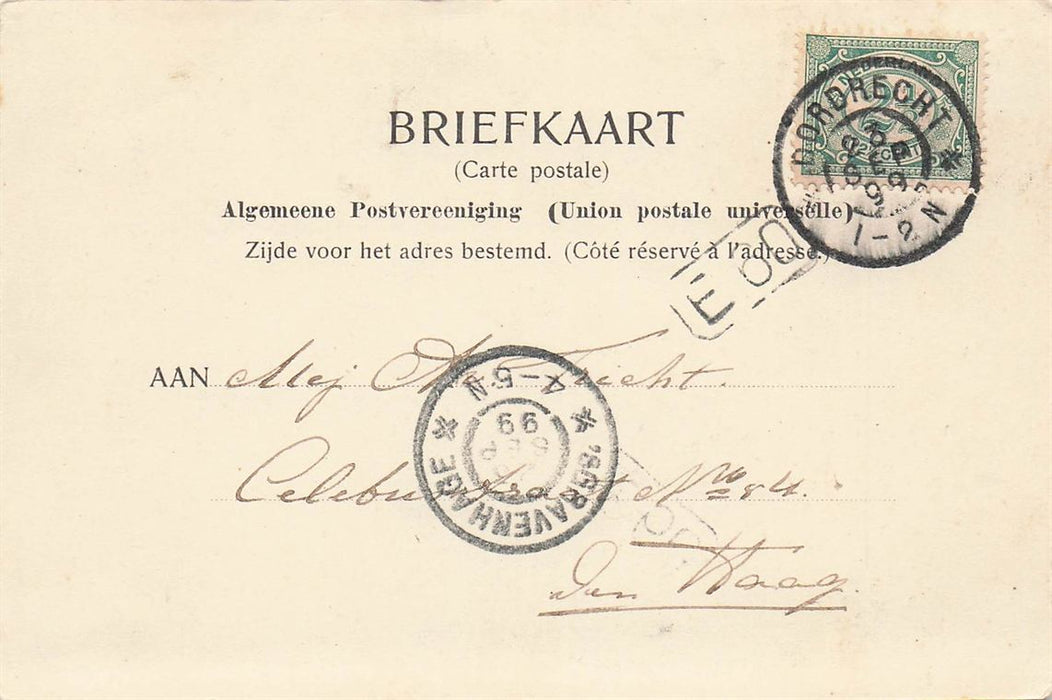 NEDERLAND
2½
DORDRECHT
SEP
99
1-2 N
BRIEFKAART
(Carte postale)
Algemeene Postvereeniging (Union postale universelle)
Zijde voor het adres bestemd. (Côté réservé à l'adresse.)
E 60
AAN Mej Trecht.
4-5 N
99
SEP
'SGRAVENHAGE
Nº 84.
Den Haag.